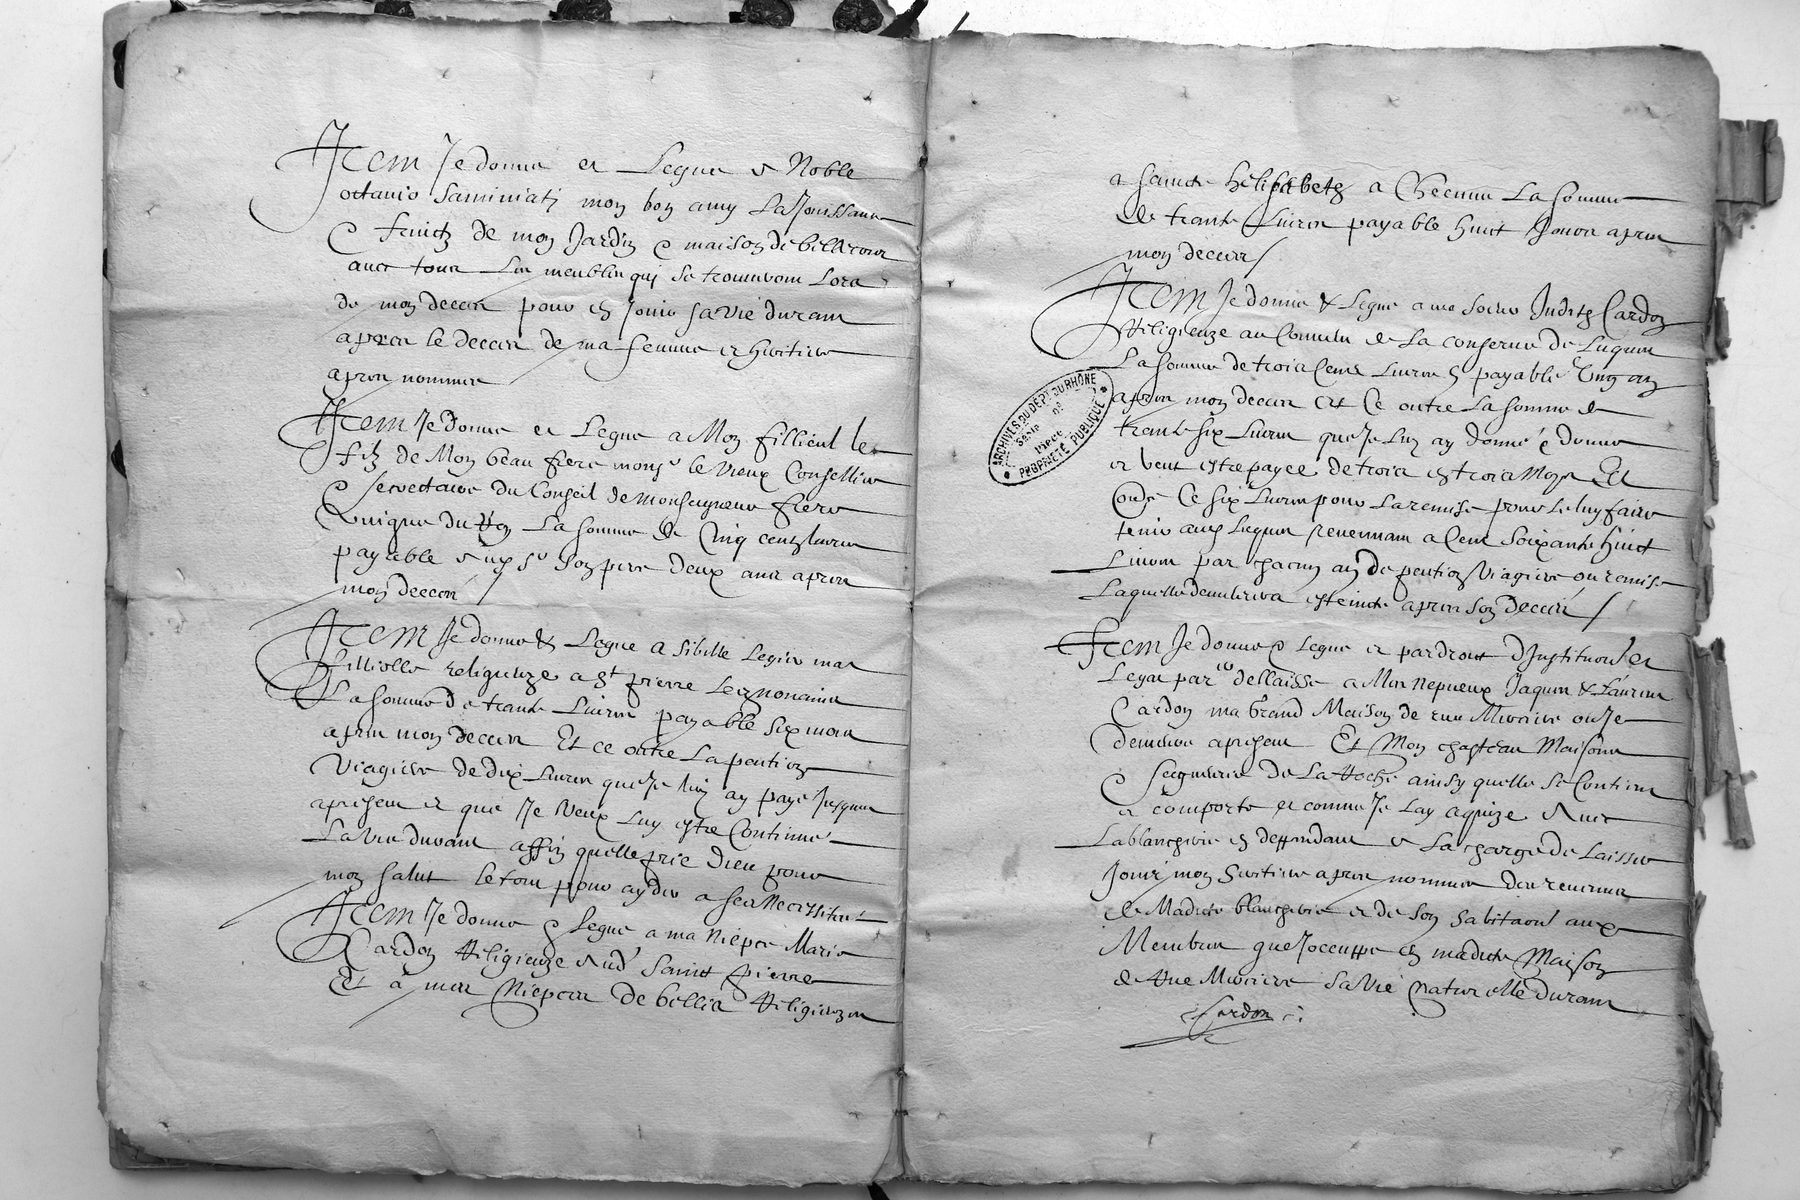 Item Je donne et Legue a Noble
octavio Saminiatj mon bon amy La Jouissance
& fruictz de mon Jardin & maison de bellecour
avec tous Les meubles quj se trouveront Lors
de mon deces pour en Jouir sa vie durant
apres le deces de ma femme et heritiere
apres nommee
Item Je donne et Legue a Mon fillieul le
filz de Mon beau frere monsr le vieux Conseillier
& secrettaire du Conseil de monseigneur frere
Unique du Roy La somme de Cinq centz livres
payable aux sr son pere deux ans apres
mon deces /
Item Je donne & Legue a Sibille Legier ma
fillielle religieuze a St pierre Les nonains
La somme de trante Livres payable six mois
apres mon deces Et ce outre La pention
viagiere de dix Livres que Je luy ay paye Jusques
apresent et que Je veux Luy estre Continué
La vie durant affin quelle prie Dieu pour
mon salut le tout pour ayder a ses Necessitez
Item Je donne & Legue a ma Niepce Marie
Cardon Religieuze aud Sainct pierre
Et à mes Niepces De bellia Religieuzes
a saincte Helisabeth a Checune La somme
de trante Livres payable huict Jours apres
mon deces /
Item Je donne & Legue a ma soeur Judith Cardon
Religieuze au Convent de La conserva de Luques
La somme de trois Cens Livres payable Ung an
apres mon deces Et Ce outre La somme de
trante six Livres que Je Luy ay donné & donne
et veut estre payee de trois en trois Moys Et
oultre Ce six Livres pour La remise pour Le luy faire
tenir aud Luques revenant a Cent Soixante huict
Livres par chacun an de pention Viagiere ou remise
Laquelle demeurera esteincte apres son Deces /
Item Je donne & Legue et par droict d'Institution et
Legat par dellaisse a Mes Nepveux Jaques & Laurens
Cardon ma Grand Maison de rue Merciere ou Je
demeure apresent Et Mon chasteau Maison
& seigneurie de La Roche ainsy quelle se Contient
et comporte et comme Je Lay aquize Avec
La blancherie en deppendant a La charge de Laisser
Jouir mon heritiere apres nommee des revenus
de Madite blancherie et de son habitation aux
Membres que Joccuppe en madite Maison
de Rue Merciere sa vie naturelle durant
Cardon
ARCHIVES DU DÉPT DU RHÔNE
Série no
Pièce
PROPRIÉTÉ PUBLIQUE